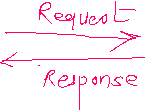 Request
Response